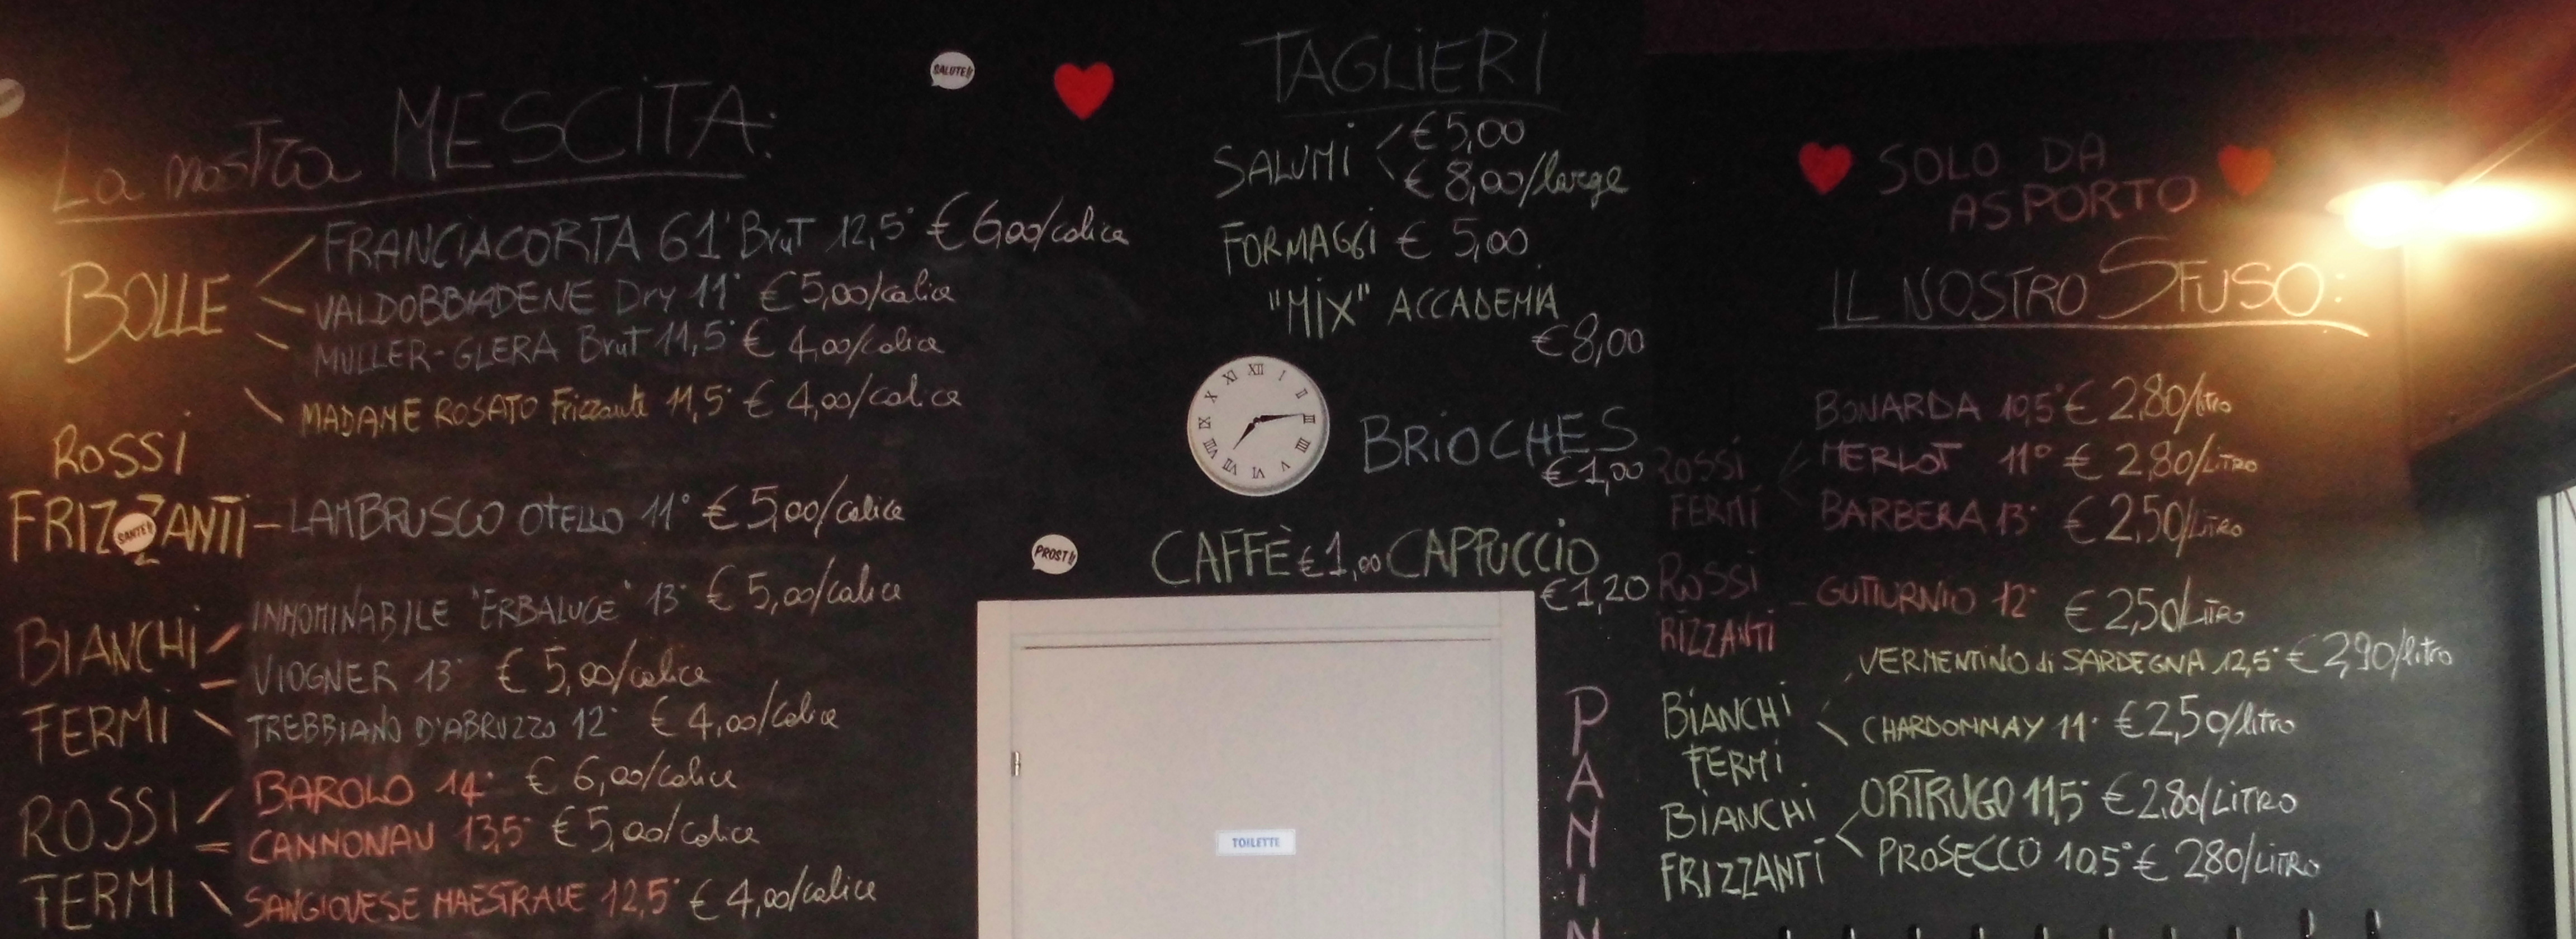 La nostra MESCITA:
BOLLE
FRANCIACORTA 61' Brut 12,5° € 6,00/calice
VALDOBBIADENE Dry 11° € 5,00/calice
MULLER-GLERA Brut 11,5° € 4,00/calice
MADAME ROSATO Frizzante 11,5° € 4,00/calice
ROSSI
FRIZZANTI - LAMBRUSCO OTELLO 11° € 5,00/calice
SANTE!!
BIANCHI
FERMI
INNOMINABILE "ERBALUCE" 13° € 5,00/calice
VIOGNER 13° € 5,00/calice
TREBBIANO D'ABRUZZO 12° € 4,00/calice
ROSSI
FERMI
BAROLO 14° € 6,00/calice
CANNONAU 13,5° € 5,00/calice
SANGIOVESE MAESTRALE 12,5° € 4,00/calice
SALUTE!!
TAGLIERI
SALUMI € 5,00
€ 8,00/large
FORMAGGI € 5,00
"MIX" ACCADEMIA
€ 8,00
XII I II III IIII V VI VII VIII IX X XI
BRIOCHES
€ 1,00
PROST!!
CAFFÈ € 1,00 CAPPUCCIO
€ 1,20
TOILETTE
PANIN
SOLO DA
ASPORTO
IL NOSTRO SFUSO:
ROSSI
FERMI
BONARDA 10,5° € 2,80/litro
MERLOT 11° € 2,80/LITRO
BARBERA 13° € 2,50/LITRO
ROSSI
RIZZANTI
- GUTTURNIO 12° € 2,50/LITRO
BIANCHI
FERMI
VERMENTINO di SARDEGNA 12,5° € 2,90/litro
CHARDONNAY 11° € 2,50/litro
BIANCHI
FRIZZANTI
ORTRUGO 11,5° € 2,80/LITRO
PROSECCO 10,5° € 2,80/LITRO